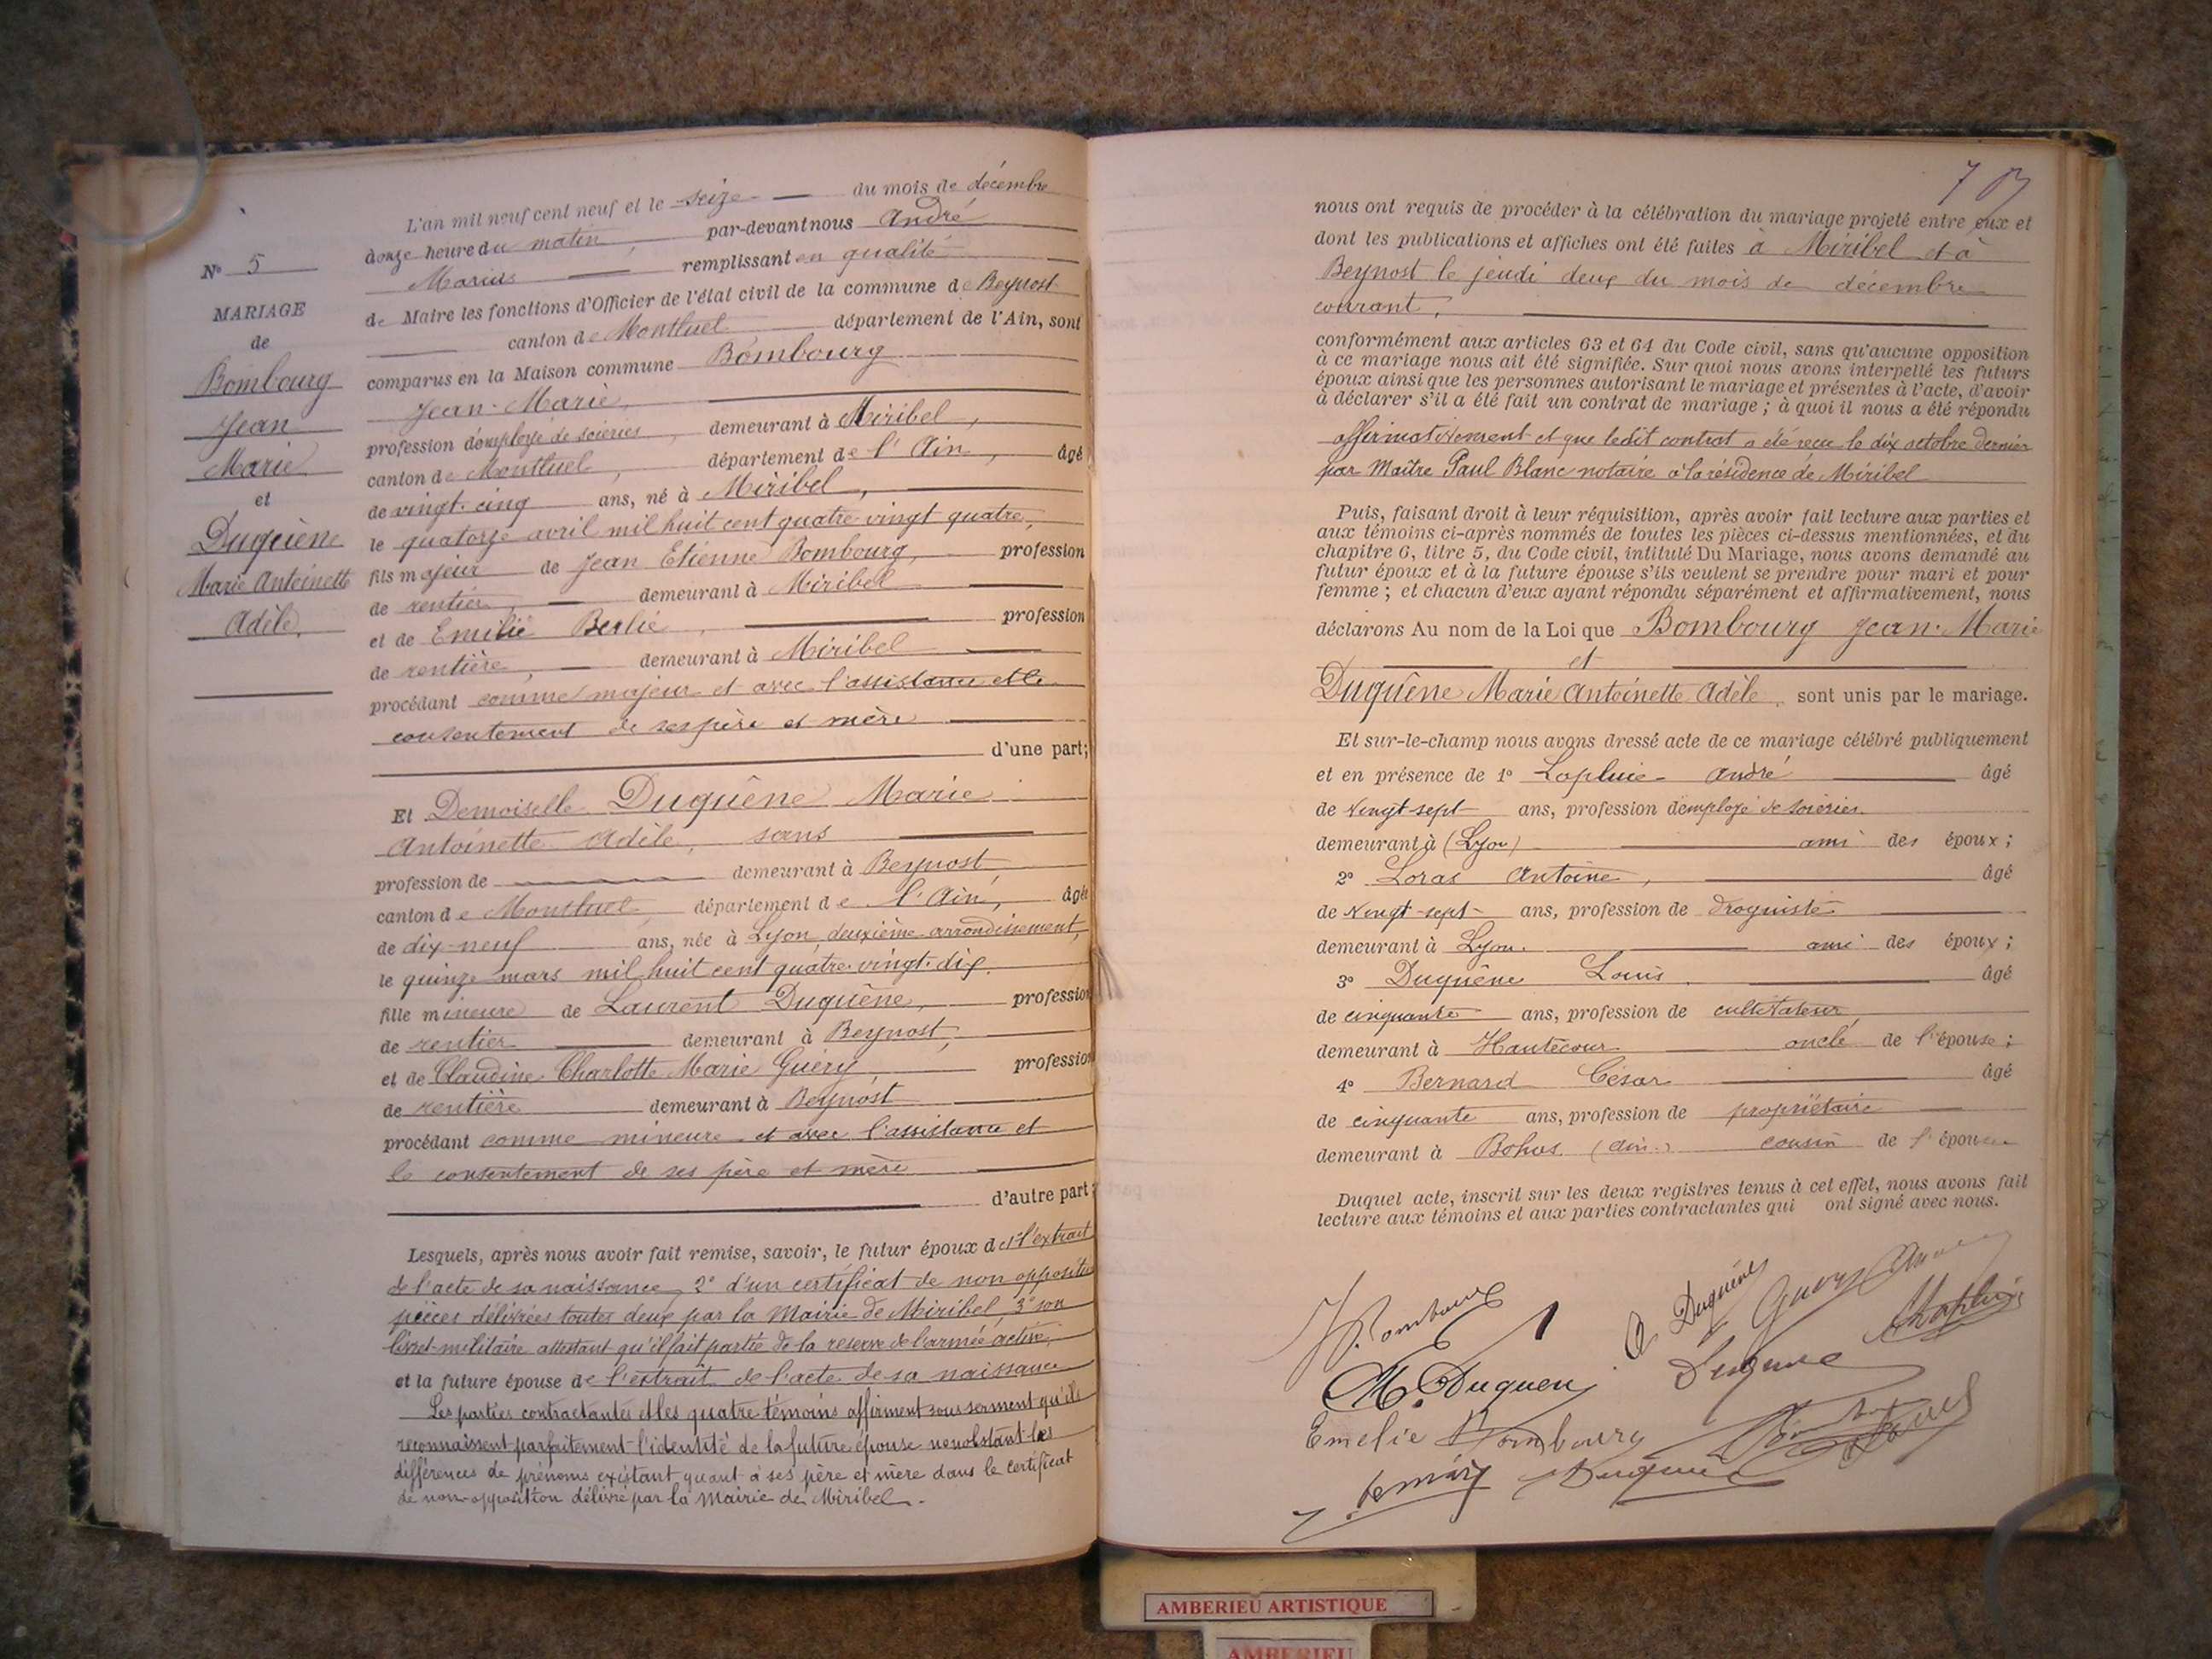 N° 5
MARIAGE
de
Bombourg
Jean
Marie
et
Duquène
Marie Antoinette
Adèle.
L'an mil neuf cent neuf et le seize du mois de décembre
à onze heure du matin, par-devant nous André
Marius remplissant en qualité
de Maire les fonctions d'Officier de l'état civil de la commune de Beynost
canton de Montluel département de l'Ain, sont
comparus en la Maison commune Bombourg
Jean-Marie,
profession d'employé de soieries, demeurant à Miribel,
canton de Montluel, département de l'Ain, âgé
de vingt-cinq ans, né à Miribel,
le quatorze avril mil huit cent quatre-vingt quatre,
fils majeur de Jean Etienne Bombourg, profession
de rentier, demeurant à Miribel
et de Emilie Berlie, profession
de rentière, demeurant à Miribel
procédant comme majeur et avec l'assistance et le
consentement de ses père et mère
d'une part;
Et Demoiselle Duquène Marie
Antoinette Adèle, sans
profession de demeurant à Beynost,
canton de Montluel département de l'Ain, âgée
de dix-neuf ans, née à Lyon deuxième arrondissement,
le quinze mars mil huit cent quatre-vingt-dix.
fille mineure de Laurent Duquène, profession
de rentier demeurant à Beynost,
et de Claudine Charlotte Marie Guéry, profession
de rentière demeurant à Beynost
procédant comme mineure et avec l'assistance et
le consentement de ses père et mère
d'autre part;
Lesquels, après nous avoir fait remise, savoir, le futur époux de 1° l'extrait
de l'acte de sa naissance, 2° d'un certificat de non opposition
pièces délivrées toutes deux par la Mairie de Miribel, 3° son
livret militaire attestant qu'il fait partie de la reserve de l'armée active,
et la future épouse de l'extrait de l'acte de sa naissance
Les parties contractantes et les quatre témoins affirment sous serment qu'ils
reconnaissent parfaitement l'identité de la future épouse nonobstant les
différences de prénoms existant quant à ses père et mère dans le certificat
de non-opposition délivré par la Mairie de Miribel.
nous ont requis de procéder à la célébration du mariage projeté entre eux et
dont les publications et affiches ont été faites à Miribel et à
Beynost le jeudi deux du mois de décembre
courant,
conformément aux articles 63 et 64 du Code civil, sans qu'aucune opposition
à ce mariage nous ait été signifiée. Sur quoi nous avons interpellé les futurs
époux ainsi que les personnes autorisant le mariage et présentes à l'acte, d'avoir
à déclarer s'il a été fait un contrat de mariage; à quoi il nous a été répondu
affirmativement et que ledit contrat a été recu le dix octobre dernier
par Maître Paul Blanc notaire à la résidence de Miribel
Puis, faisant droit à leur réquisition, après avoir fait lecture aux parties et
aux témoins ci-après nommés de toutes les pièces ci-dessus mentionnées, et du
chapitre 6, titre 5, du Code civil, intitulé Du Mariage, nous avons demandé au
futur époux et à la future épouse s'ils veulent se prendre pour mari et pour
femme; et chacun d'eux ayant répondu séparément et affirmativement, nous
déclarons Au nom de la Loi que Bombourg Jean-Marie
et
Duquène Marie Antoinette Adèle, sont unis par le mariage.
Et sur-le-champ nous avons dressé acte de ce mariage célébré publiquement
et en présence de 1° Lapluie André âgé
de vingt-sept ans, profession d'employé de soieries
demeurant à (Lyon) ami des époux;
2° Loras Antoine, âgé
de vingt-sept ans, profession de droguiste
demeurant à Lyon. ami des époux;
3° Duquène Louis, âgé
de cinquante ans, profession de cultivateur,
demeurant à Hautecour oncle de l'épouse;
4° Bernard César âgé
de cinquante ans, profession de propriétaire
demeurant à Bohas (Ain.) cousin de l'épouse
Duquel acte, inscrit sur les deux registres tenus à cet effet, nous avons fait
lecture aux témoins et aux parties contractantes qui ont signé avec nous.
J. Bombourg A Duquène Guery
ALapluie
M. Duquen Duquene
Emelie Bombourg
Duquène
AMBERIEU ARTISTIQUE
AMBERIEU